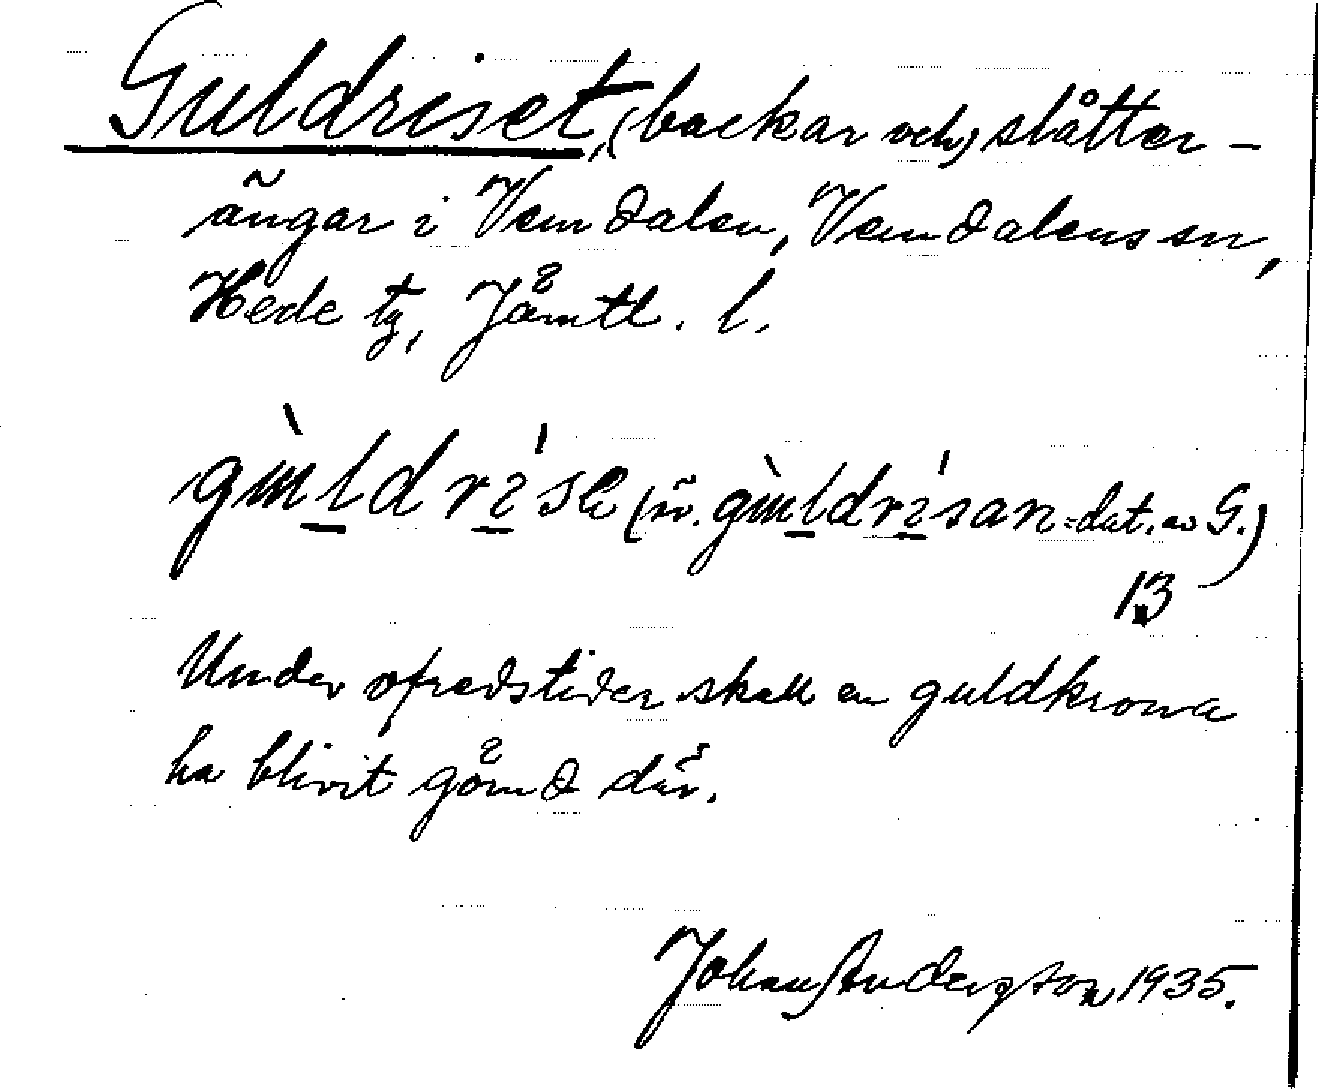 Guldriset, (backar och) slåtter-
ängar i Vemdalen, Vemdalens sn,
Hede tg, Jämtl. l.
gùldrí̱se (ä. gùldrí̱san = dat. av G.)
13
Under ofredstider skall en guldkrona
ha blivit gömd där.
Johan Anderson 1935.